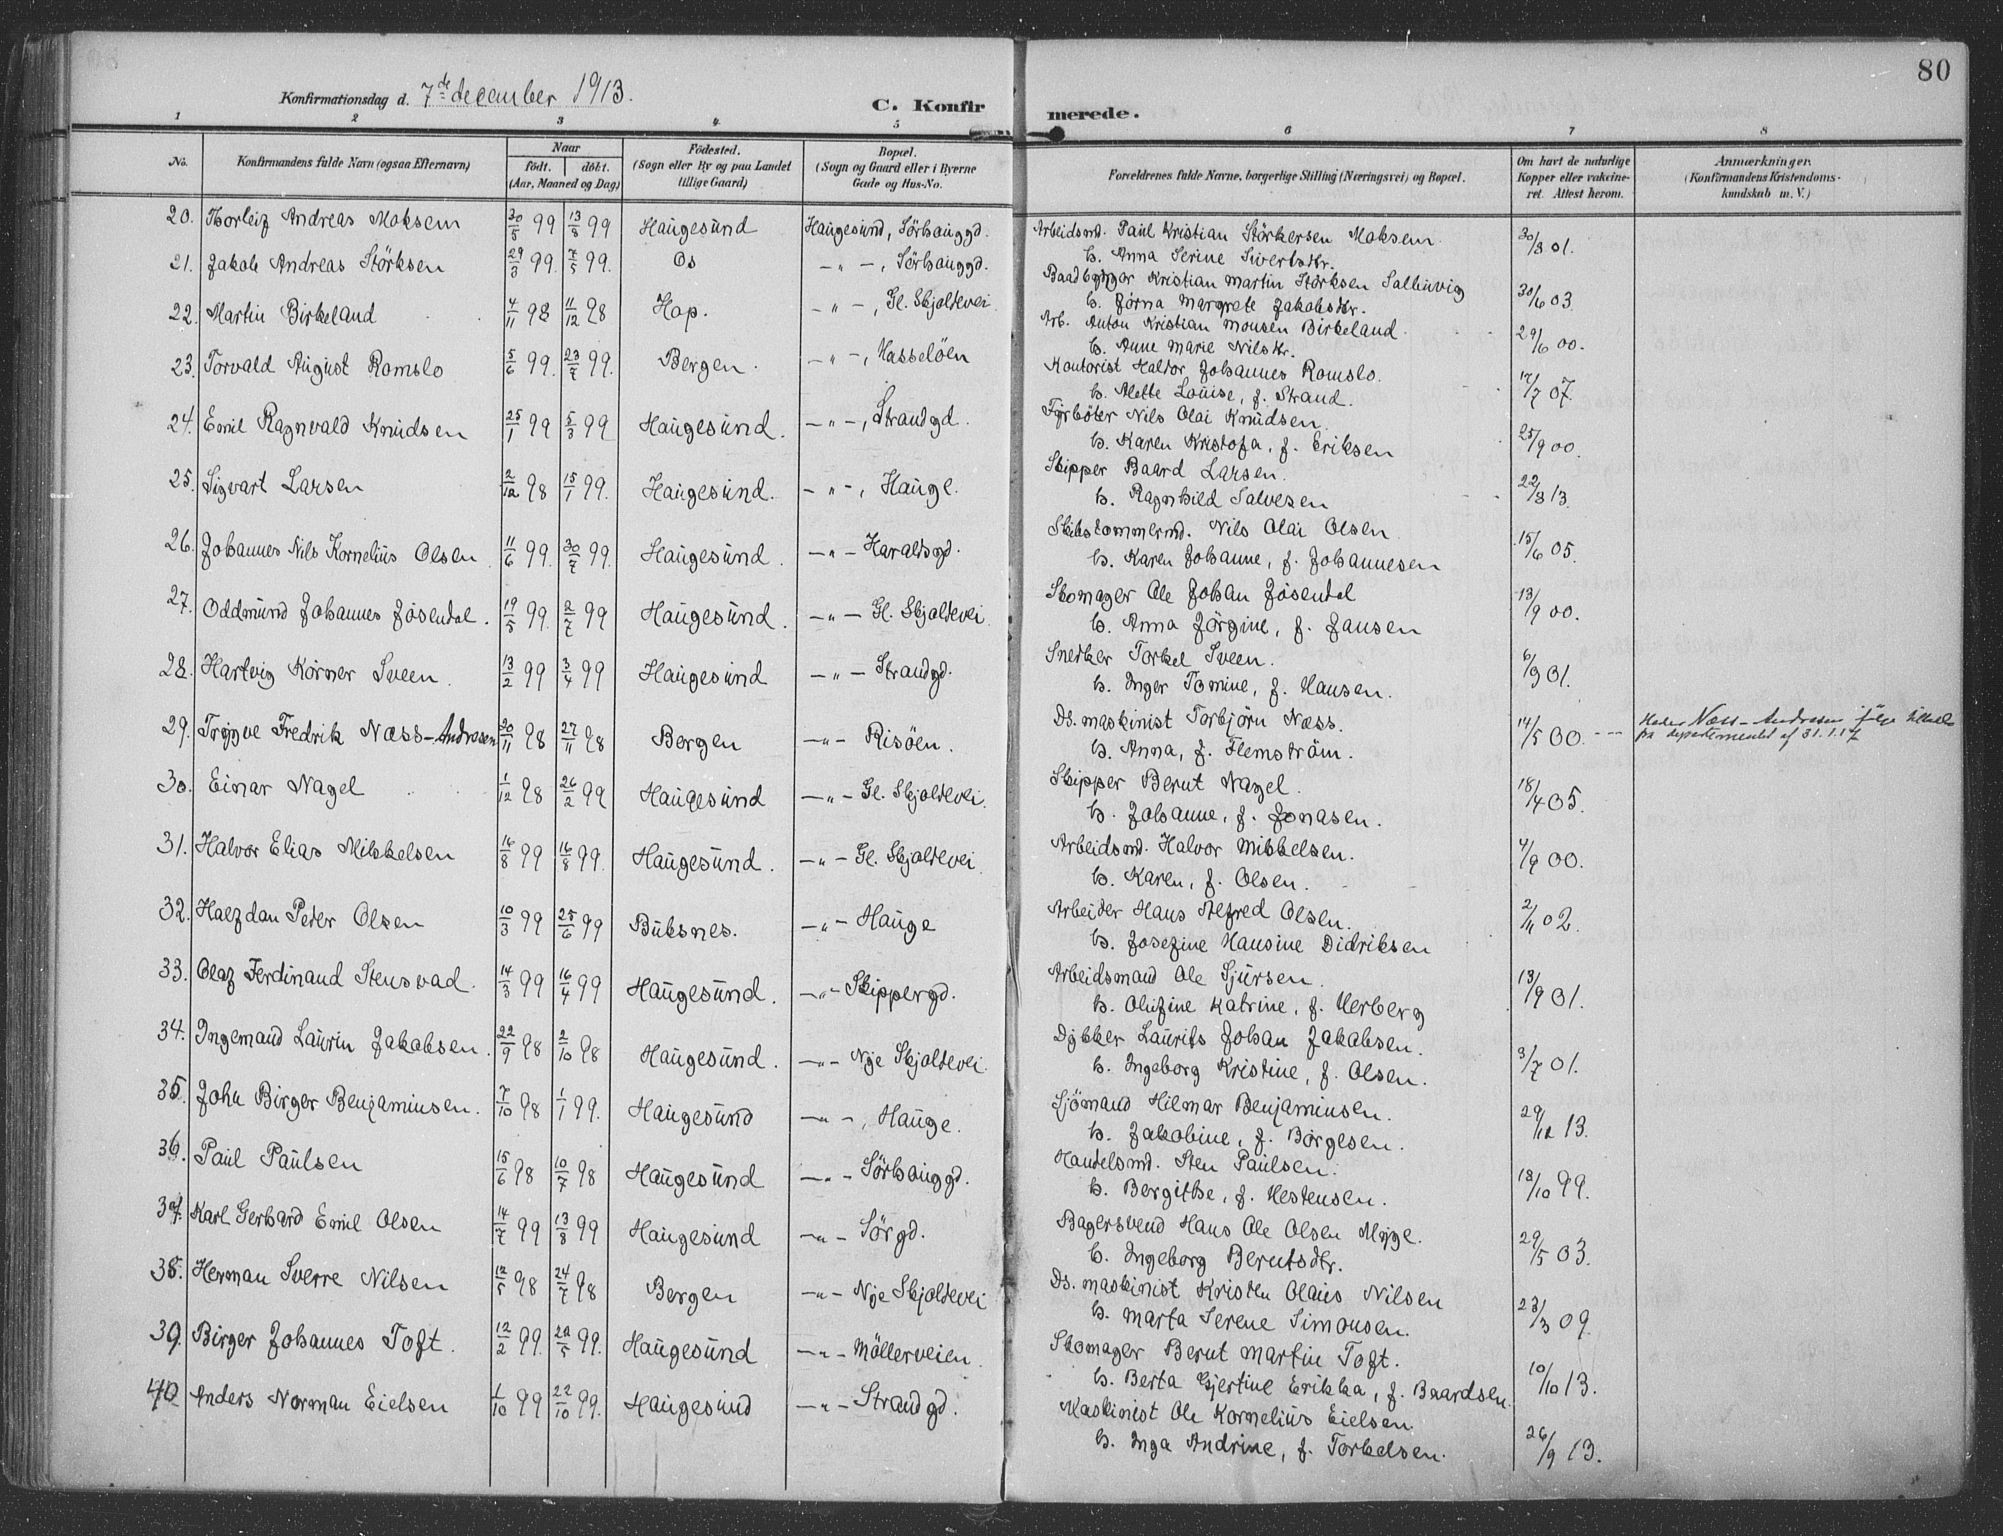 80
Konfirmationsdag d. 7de december 1913.
C. Konfirmerede.
1 2 3 4 5 6 7 8
No. Konfirmandens fulde Navn (ogsaa Efternavn) Naar födt. döbt. (Aar, Maaned og Dag) Födested. (Sogn eller By og paa Landet tillige Gaard) Bopæl. (Sogn og Gaard eller i Byerne Gade og Hus-No. Forældrenes fulde Navne, borgerlige Stilling (Næringsvei) og Bopæl. Om havt de naturlige Kopper eller vakcineret. Attest herom. Anmærkninger. (Konfirmandens Kristendomskundskab m. V.)
20. Thorleif Andreas Moksem 30/5 99 13/8 99 Haugesund Haugesund, Sörhauggd. Arbeidsmd. Paul Kristian Störkersen Moksem 30/8 01.
h. Anna Serine Sivertsdtr.
21. Jakob Andreas Störksen 29/3 99. 7/5 99. Os -"-, Sörhauggd. Baadbygger Kristian Martin Störksen Salhusvig 30/6 03
h. Jörna Margrete Jakobsdtr.
22. Martin Birkeland 4/11 98 11/12 98 Hop. -"-, Gl. Skjoldevei Arb. Anton Kristian Monsen Birkeland 29/6 00.
h. Anne Marie Nilsdtr.
23. Torvald August Romslo 5/6 99. 23/7 99. Bergen. -"-, Hasselöen Kontorist Haldor Johannes Romslo. 17/7 07.
h. Alette Louise, f. Strand.
24. Emil Ragnvald Knudsen 25/1 99 5/3 99 Haugesund. -"-, Strandgd. Fyrböter Nils Olai Knudsen 25/9 00.
h. Karen Kristofa, f. Eriksen
25. Sigvart Larsen 2/12 98 15/1 99. Haugesund. -"-, Hauge. Skipper Baard Larsen. 22/8 13.
h. Ragnhild Salvesen
26. Johannes Nils Kornelius Olsen 11/6 99. 30/7 99. Haugesund. -"- Haraldsgd. Skibstömmermd. Nils Olai Olsen 15/6 05.
h. Karen Johanne, f. Johannesen
27. Oddmund Johannes Jösendal. 19/5 99. 2/7 99 Haugesund. -"- Gl. Skjoldevei Skomager Ole Johan Jösendal 13/9 00.
h. Anna Jörgine, f. Jansen
28. Hartvig Körner Sveen. 13/2 99 3/4 99 Haugesund -"- Strandgd. Snedker Torkel Sveen. 6/9 01.
h. Inger Tomine, f. Hansen.
29. Trygve Fredrik Næss-Andresen 20/11 98 27/11 98 Bergen -"- Risöen. Ds. maskinist Torbjörn Næss. 14/5 00. --- Heder Næss-Andresen ifölge
h. Anna, f. Flemström. fra departementet af 31.1.17
30. Einar Nagel 1/12 98 26/2 99 Haugesund -"- Gl. Skjoldevei. Skipper Bernt Nagel. 18/4 05.
h. Johanne, f. Jonasen.
31. Halvor Elias Mikkelsen 16/8 99 16/8 99. Haugesund. -"- Gl. Skjoldevei Arbeidsmd. Halvor Mikkelsen. 4/9 00.
h. Karen, f. Olsen.
32. Halfdan Peder Olsen 10/3 99 25/6 99 Buksnes. -"- Hauge Arbeider Hans Alfred Olsen. 2/11 02.
h. Josefine Hansine Didriksen
33. Olaf Ferdinand Stensvad. 14/3 99 16/4 99 Haugesund. -"- Skippergd. Arbeidsmand Ole Sjursen. 13/9 01.
h. Olufine Katrine, f. Herberg
34. Ingemand Laurin Jakobsen. 22/9 98 2/10 98 Haugesund. -"- Nye Skjoldevei. Dykker Laurits Johan Jakobsen. 3/7 01.
h. Ingeborg Kristine, f. Olsen.
35. John Birger Benjaminsen. 7/10 98 1/1 99. Haugesund -"-, Hauge. Sjömand Hilmar Benjaminsen. 29/12 13.
h. Jakobine, f. Börgesen.
36. Paul Paulsen 15/6 98 10/7 98 Haugesund -"- Sörhauggd. Handelsmd. Sten Paulsen. 13/10 99.
h. Bergithe, f. Hestensen.
37. Karl Gerhard Emil Olsen 14/7 99 13/8 99 Haugesund -"- Sörgd. Bagersvend Hans Ole Olsen Myge. 29/5 03.
h. Ingeborg Berntsdtr.
38. Herman Sverre Nilsen 12/5 98 24/7 98 Bergen -"- Nye Skjoldevei Ds. maskinist Kristen Olaus Nilsen 23/3 09.
h. Marta Serene Simonsen.
39. Birger Johannes Toft. 12/2 99. 22/5 99. Haugesund -"- Möllerveien. Skomager Bernt Martin Toft. 10/10 13.
h. Berta Gjertine Erikka, f. Baardsen.
40 Anders Norman Eielsen 1/10 99 22/10 99. Haugesund -"- Strandgd. Maskinist Ole Kornelius Eielsen 26/9 13.
h. Inga Andrine, f. Torkelsen.